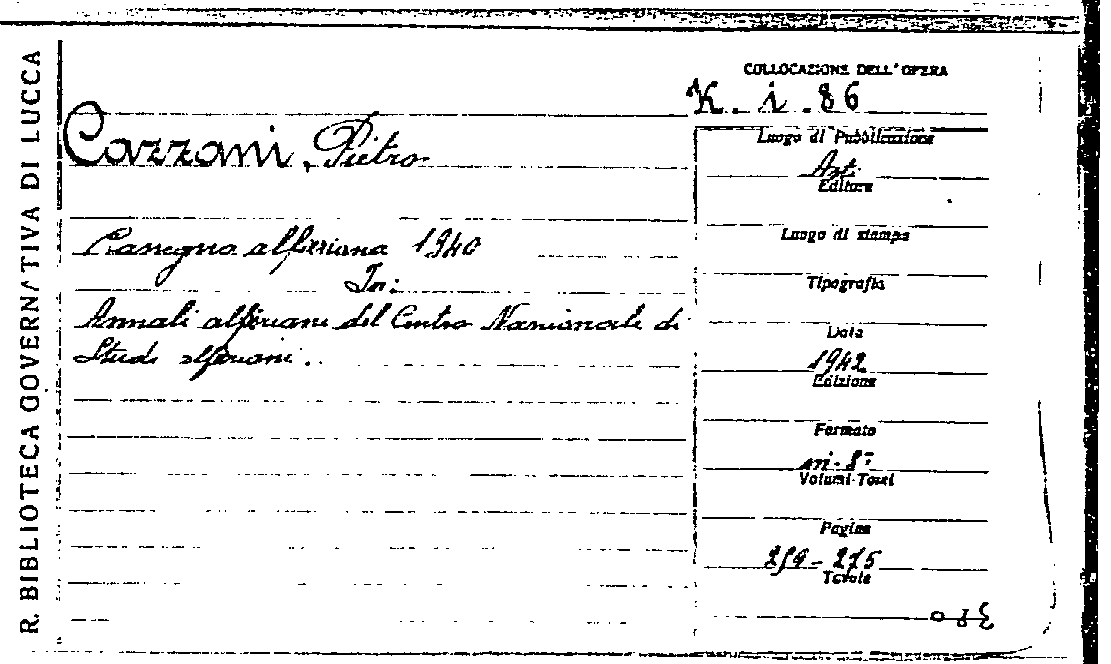 R. BIBLIOTECA GOVERNATIVA DI LUCCA
COLLOCAZIONE DELL'OPERA
K. i. 86
Cazzani, Pietro
Rassegna alfieriana 1940
In:
Annali alfieriani del Centro Nazionale di
Studi alfieriani.
Luogo di Pubblicazione
Asti
Editore
Luogo di stampa
Tipografia
Data
1942
Edizione
Formato
in-8°
Volumi-Tomi
Pagine
259-275
Tavole